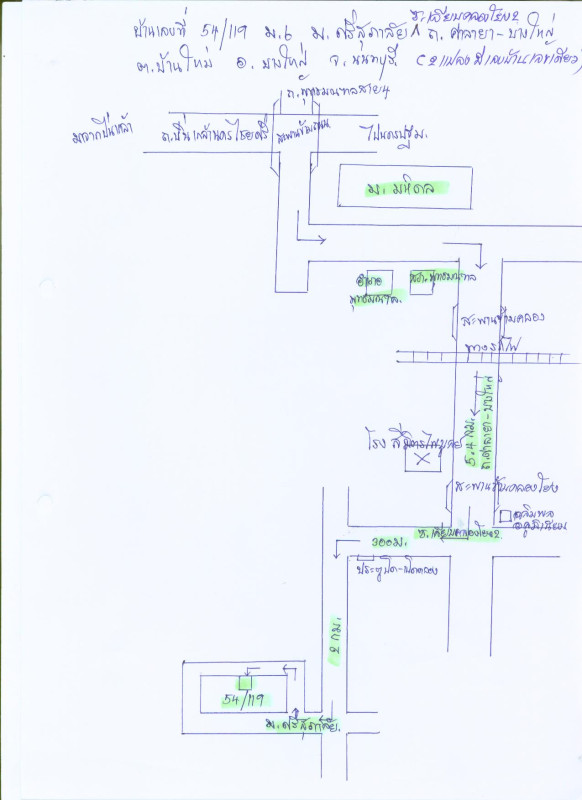 ซ.เลียบคลองโยง2
บ้านเลขที่ 54/119 ม.6 ม.ศรีสุภาลัย ถ.ศาลายา-บางใหญ่
ต.บ้านใหม่ อ.บางใหญ่ จ.นนทบุรี (2แปลงมีเลขบ้านเลขเดียว)
ถ.พุทธมณฑลสาย4
มาจากปิ่นเกล้า ถ.ปิ่นเกล้านครไชยศรี สะพานข้ามถนน ไปนครปฐม.
ม. มหิดล
อำเภอ
พุทธมณฑล.
พุทธมณฑล
สะพานข้ามคลอง
ทางรถไฟ
5.4 กม.
ถ.ศาลายา-บางใหญ่
โรงสี
สะพานข้ามคลองโยง
ซ.เลียบคลองโยง2.
300ม.
ประตูปิด-เปิดคลอง
2 กม.
54/119
ม.ศรีสุภาลัย.